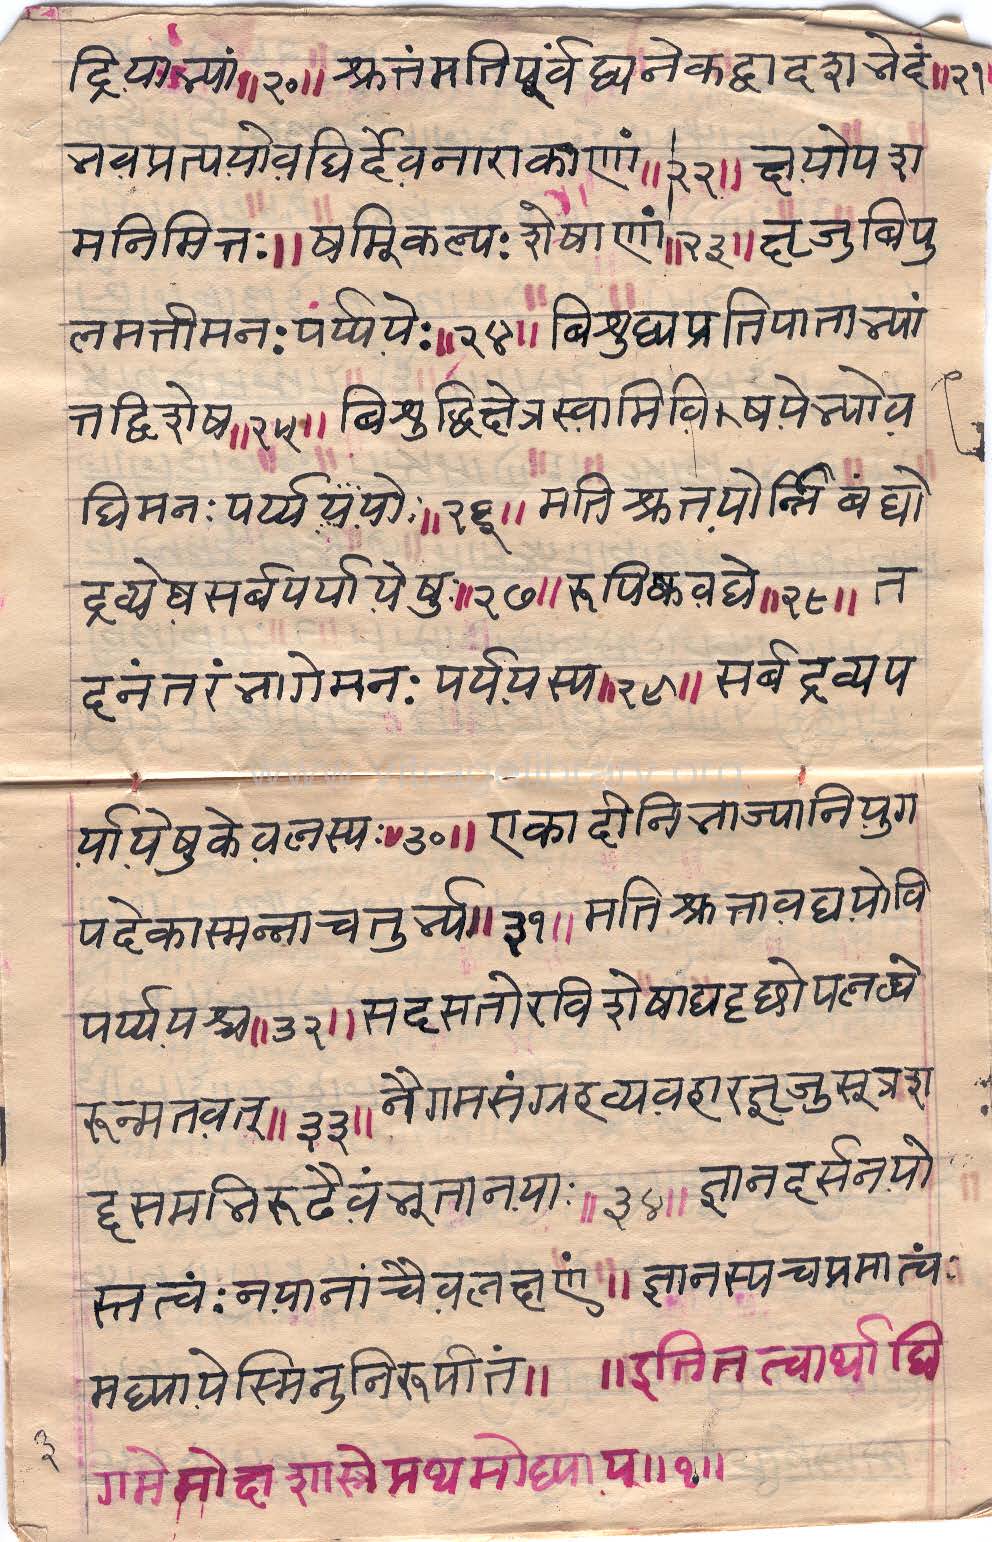 द्रियाभ्यां॥२०॥ श्रुतंमतिपूर्वंद्व्यनेकद्वादशभेदं॥२१॥
भवप्रत्ययोवधिर्देवनाराकाणां॥२२॥ क्षयोपश
मनिमित्तः॥ षम्निकल्पः शेषाणां॥२३॥ ऋजुबिपु
लमत्तीमनःपर्य्यये:॥२४॥ बिशुद्ध्यप्रतिपाताभ्यां
तद्विशेष॥२५॥ बिशुद्धिक्षेत्रस्वामिविषयेभ्योव
धिमनःपर्य्यययोः॥२६॥ मतिश्रुतयोर्न्निबंधो
द्रव्येषसर्बपर्यायेषुः॥२७॥ रूपिष्कवधे॥२८॥ त
दनंतरंभागेमनः पर्ययस्य॥२९॥ सर्बद्रव्यप
र्यायेषुकेवलस्यः॥३०॥ एकादीनिभाज्यानियुग
पदेकास्मन्नाचतुर्भ्य॥३१॥ मतिश्रुतावधयोवि
पर्य्ययश्च॥३२॥ सदसतोरविशेषाद्यदृछोपलब्धे
रून्मतवत्॥३३॥ नैगमसंग्रहव्यवहारऋजुसूत्रश
द्दसमभिरूढैवंभूतानयाः॥३४॥ ज्ञानदर्सनयो
स्तत्वं:नयानांचैवलक्षणं॥ ज्ञानस्यचप्रमात्वं:
मध्यायेस्मिनुनिरूपीतं॥ ॥इतितत्वार्थाधि
गमेमोक्षशास्त्रेप्रथमोध्याय॥१॥
३